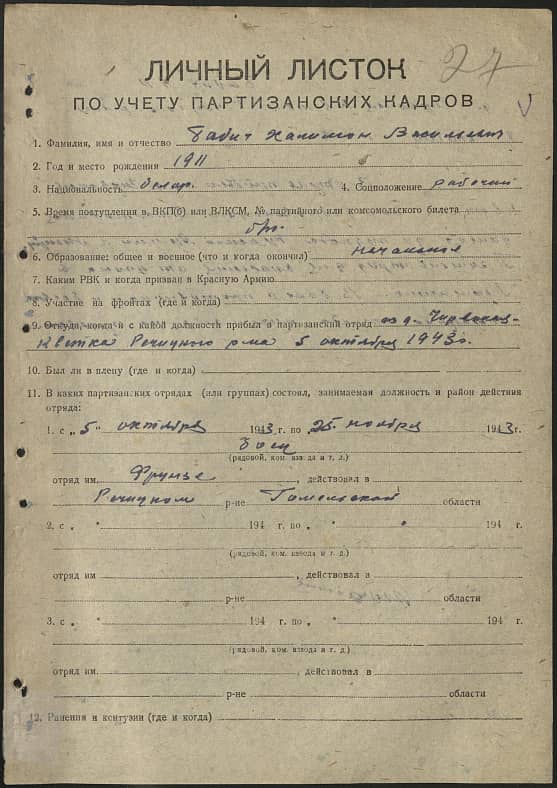 27
ЛИЧНЫЙ ЛИСТОК
ПО УЧЕТУ ПАРТИЗАНСКИХ КАДРОВ
1. Фамилия, имя и отчество Бабич Халимон Васильевич
2. Год и место рождения 1911
3. Национальность белар. 4. Соцположение рабочий
5. Время поступления в ВКП(б) или ВЛКСМ, № партийного или комсомольского билета
б/п.
6. Образование: общее и военное (что и когда окончил) начальное
7. Каким РВК и когда призван в Красную Армию
8. Участие на фронтах (где и когда)
9. Откуда, когда и с какой должность прибыл в партизанский отряд из д.
Речицкого р-на 5 октября 1943г.
10. Был ли в плену (где и когда)
11. В каких партизанских отрядах (или группах) состоял, занимаемая должность и район действия
отряда:
1. с „ 5 " октября 1943 г. по „ 25 " ноября 1943 г.
боец
(рядовой, ком. взвода и т. д.)
отряд им. Фрунзе, действовал в
Речицком р-не Гомельской области
2. с „ " 194 г. по „ " 194 г.
(рядовой, ком. взвода и т. д.)
отряд им , действовал в
р-не области
3. с „ " 194 г. по „ " 194 г.
(рядовой, ком. взвода и т. д.)
отряд им. , действовал в
р-не области
12. Ранения и контузии (где и когда)